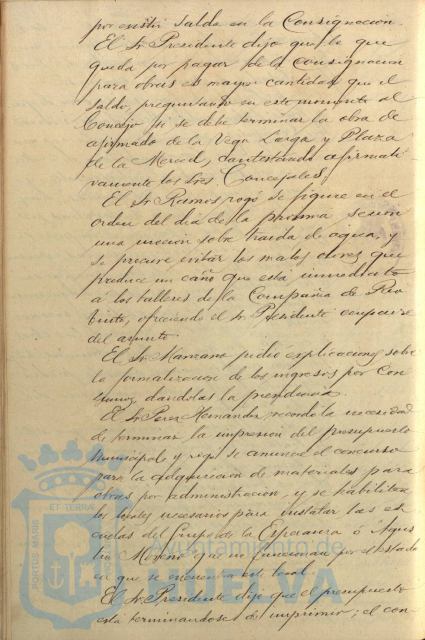 por existir saldo en la Consignacion.
El Sr. Presidente dijo que lo que
queda por pagar de la consignacion
para obras es mayor cantidad que el
saldo, preguntando en este momento al
Concejo si se debe terminar la obra de
afirmado de la Vega Larga y Plaza
de la Merced, contestando afirmati
vamente los Sres. Concejales.
El Sr. Ramos rogó se figure en el
orden del dia de la proxima sesion
una mocion sobre traida de agua, y
se procure evitar los malos olores que
produce un caño que está inmediato
á los talleres de la Compañia de Rio
tinto, ofreciendo el Sr. Presidente ocuparse
del asunto.
El Sr. Manzano pidió explicaciones sobre
la formalizacion de los ingresos por Con
sumos, dandolas la presidencia.
El Sr. Perez Hernandez recordó la necesidad
de terminar la impresion del presupuesto
municipal y rogó se anuncie el concurso
para la adquisicion de materiales para
obras por administracion, y se habiliten
los locales necesarios para instalar las es
cuelas del Grupo la Esperanza ó Agus
tin Moreno
en que se encuentra este local.
El Sr. Presidente dijo que el presupuesto
está terminandose de imprimir; el con
PORTUS MARIS
ET TERRAE
Ayuntamiento de
HUELVA